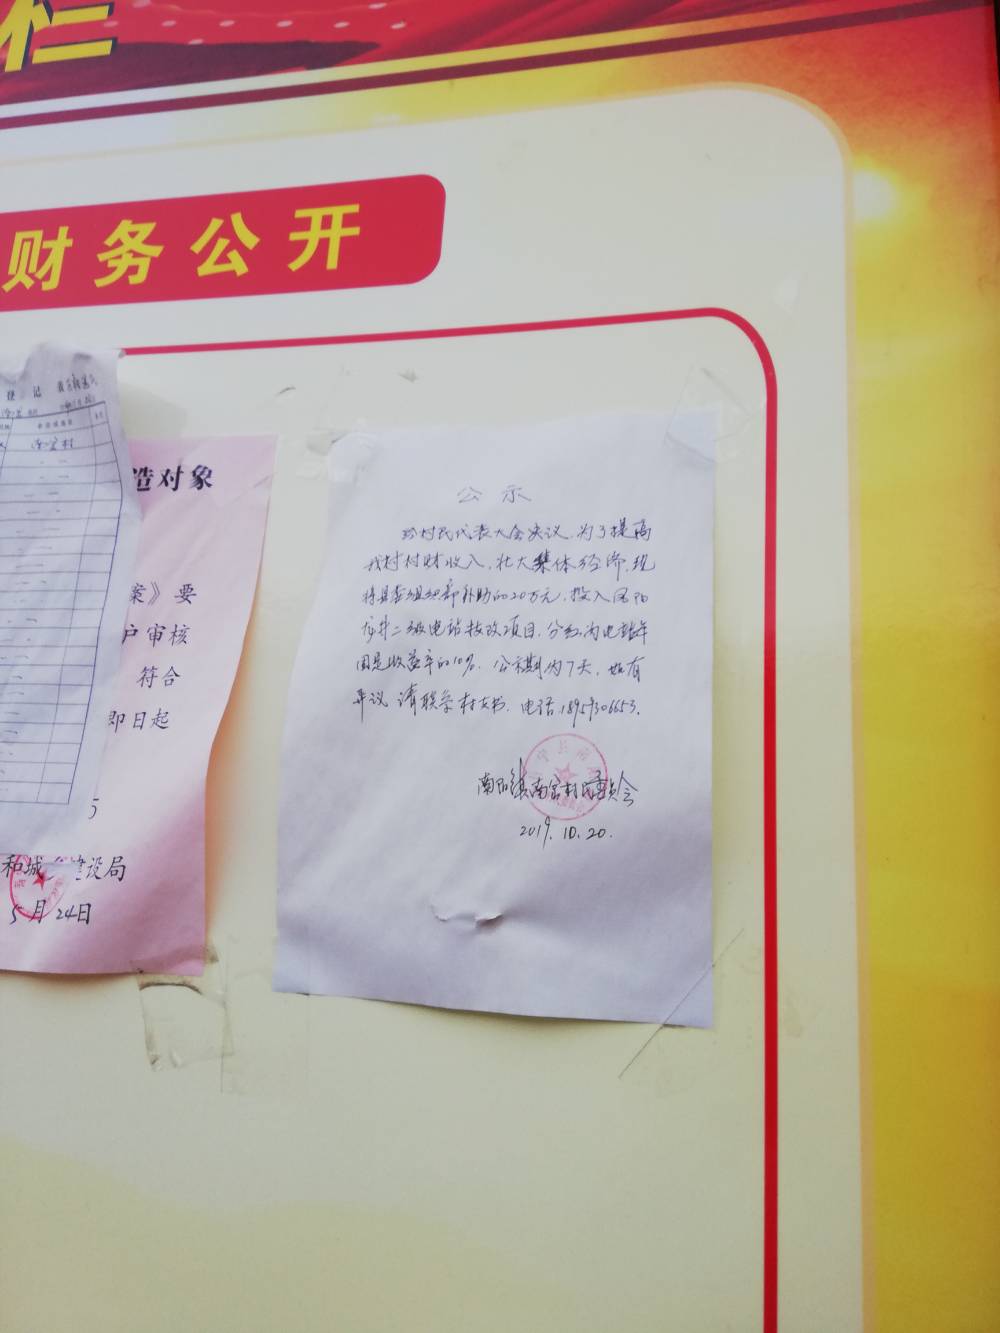 栏
财务公开
造对象
案》要
户审核
符合
即日起
5
和城 建设局
5月24日
南宫村
公示
经村民代表大会决议,为了提高
我村村财收入,壮大集体经济,现
将县委组织部补助的20万元,投入
二级电站技改项目,分红为电站年
固定收益率的10%.公示期为7天,如有
异议请联系村支书.电话
南阳镇南宫村民委员会
2019.10.20.